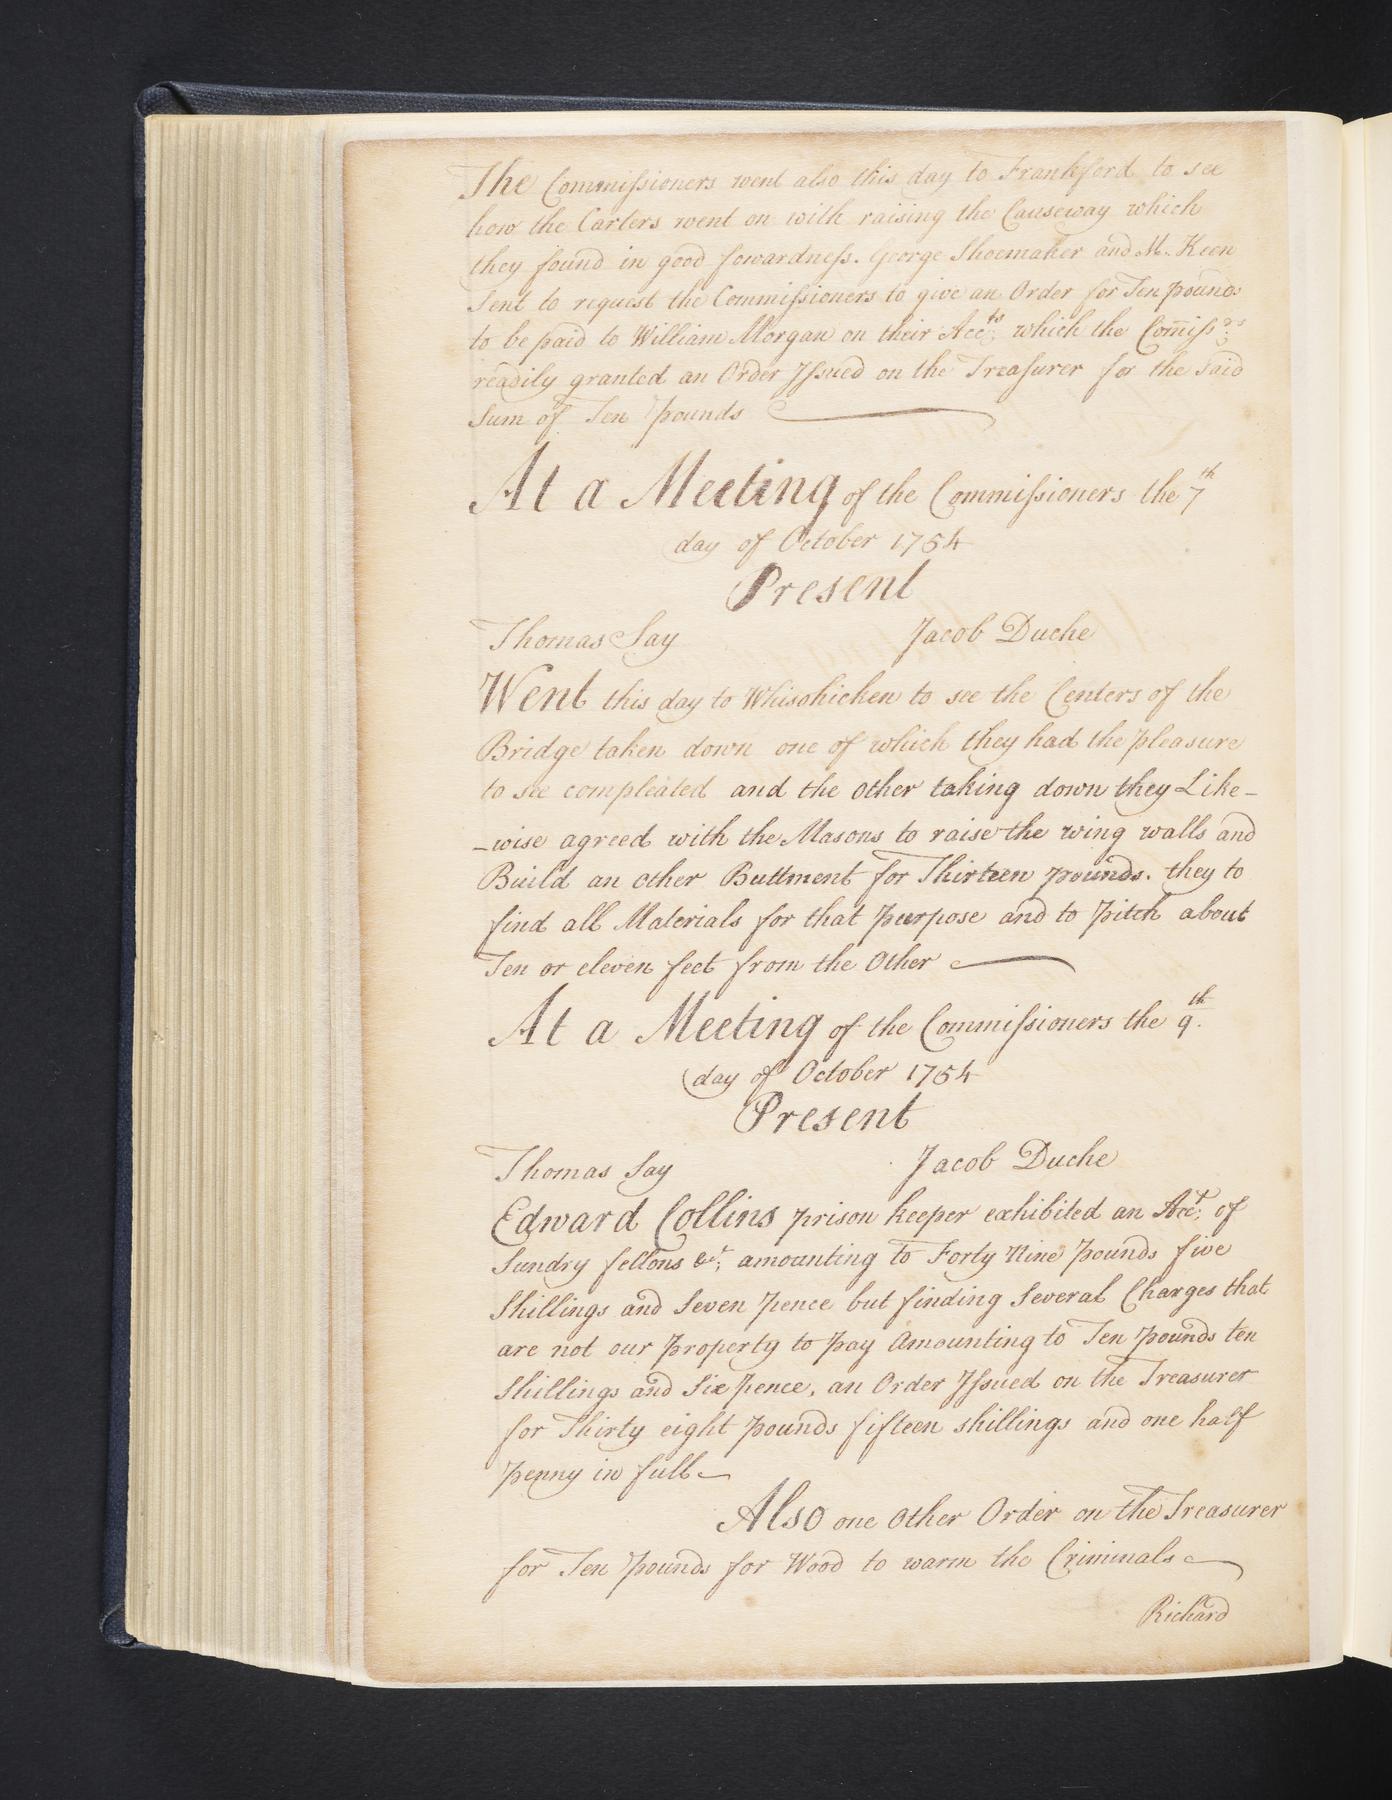 The Commissioners went also this day to Frankford to see
how the Carters went on with raising the Causeway which
they found in good fowardness. George Shoemaker and M. Keen
Sent to request the Commissioners to give an Order for Ten pounds
to be paid to William Morgan on their Accts which the Comissrs
readily granted an Order Issued on the Treasurer for the Said
Sum of Ten pounds
At a Meeting of the Commissioners the 7th
day of October 1754
Present
Thomas Say Jacob Duche
Went this day to Whisohicken to see the Centers of the
Bridge taken down one of which they had the pleasure
to see compleated and the other taking down they Like-
-wise agreed with the Masons to raise the wing walls and
Build an other Buttment for Thirteen pounds. they to
find all Materials for that purpose and to pitch about
Ten or eleven feet from the Other
At a Meeting of the Commissioners the 9th
day of October 1754
Present
Thomas Say Jacob Duche
Edward Collins prison keeper exhibited an Acct. of
Sundry fellons &ct; amounting to Forty Nine pounds five
Shillings and Seven pence but finding Several Charges that
are not our property to pay Amounting to Ten pounds ten
Shillings and Six pence, an Order Issued on the Treasurer
for Thirty eight pounds fifteen shillings and one half
penny in full
Also one Other Order on the Treasurer
for Ten pounds for Wood to warm the Criminals
Richard